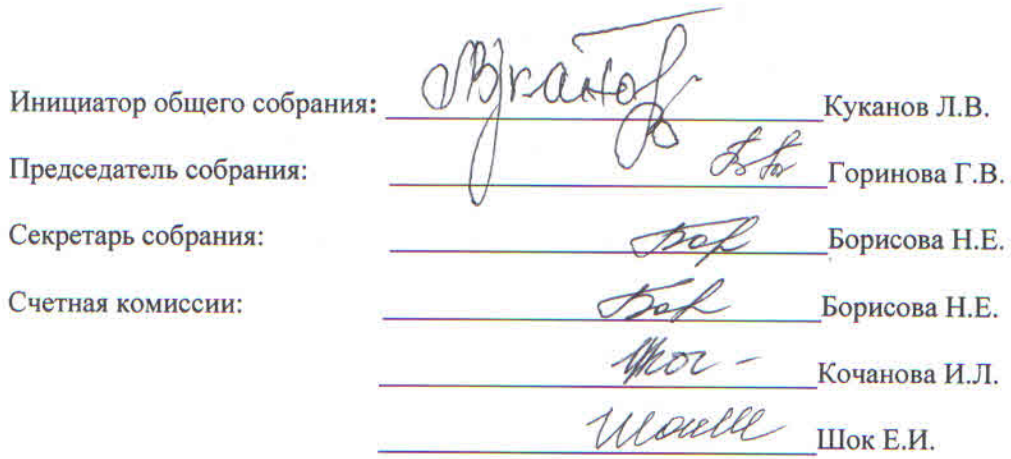 Инициатор общего собрания: Куканов Л.В.
Председатель собрания: Горинова Г.В.
Секретарь собрания: Борисова Н.Е.
Счетная комиссии: Борисова Н.Е.
Кочанова И.Л.
Шок Е.И.